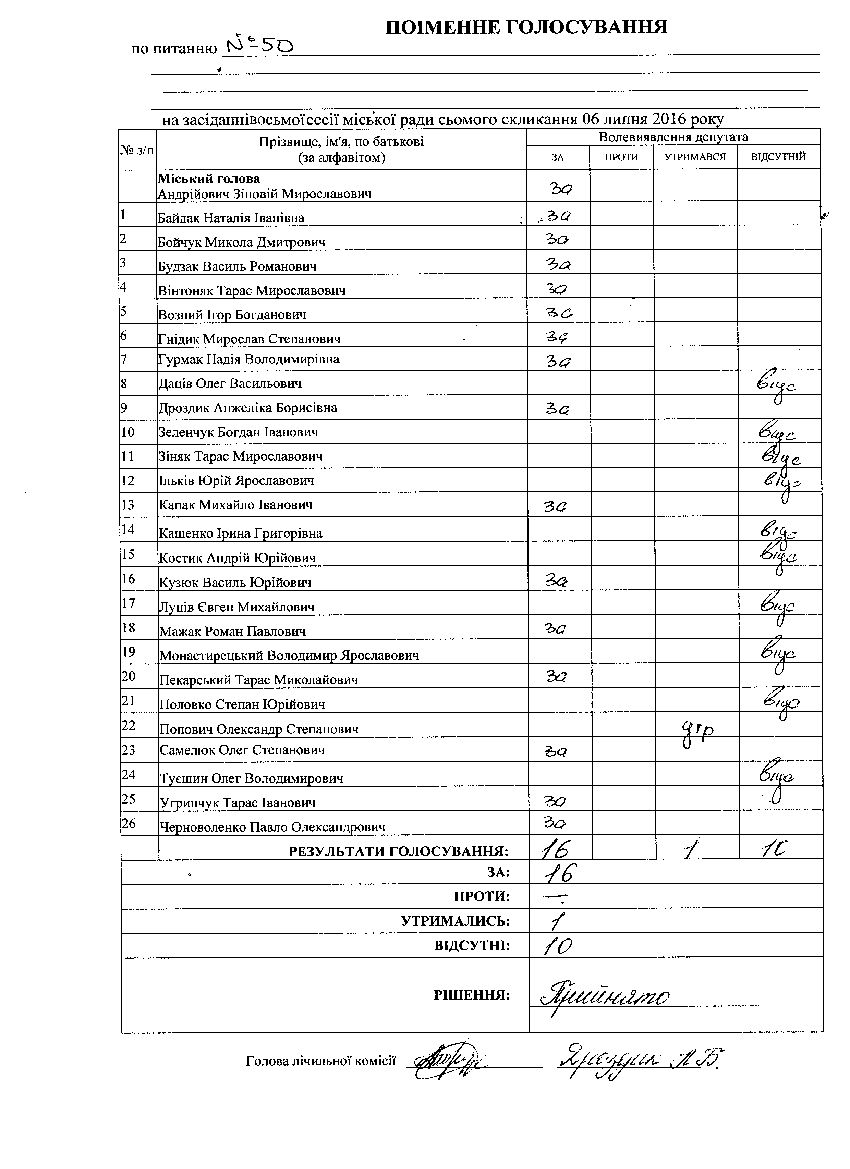 ПОІМЕННЕ ГОЛОСУВАННЯ
по питанню №50
на засіданнівосьмоїсесії міської ради сьомого скликання 06 липня 2016 року
№ з/п Прізвище, ім'я, по батькові (за алфавітом) Волевиявлення депутата
ЗА ПРОТИ УТРИМАВСЯ ВІДСУТНІЙ
Міський голова
Андрійович Зіновій Мирославович за
1 Байдак Наталія Іванівна за
2 Бойчук Микола Дмитрович за
3 Будзак Василь Романович за
4 Вінтоняк Тарас Мирославович за
5 Возний Ігор Богданович за
6 Гнідик Мирослав Степанович за
7 Гурмак Надія Володимирівна за
8 Даців Олег Васильович відс
9 Дроздик Анжеліка Борисівна за
10 Зеленчук Богдан Іванович відс
11 Зіняк Тарас Мирославович відс
12 Ільків Юрій Ярославович відс
13 Капак Михайло Іванович за
14 Кашенко Ірина Григорівна відс
15 Костик Андрій Юрійович відс
16 Кузюк Василь Юрійович за
17 Луців Євген Михайлович відс
18 Мажак Роман Павлович за
19 Монастирецький Володимир Ярославович відс
20 Пекарський Тарас Миколайович за
21 Половко Степан Юрійович відс
22 Попович Олександр Степанович утр
23 Самелюк Олег Степанович за
24 Туєшин Олег Володимирович відс
25 Угринчук Тарас Іванович за
26 Черноволенко Павло Олександрович за
РЕЗУЛЬТАТИ ГОЛОСУВАННЯ: 16 1 10
ЗА: 16
ПРОТИ: —
УТРИМАЛИСЬ: 1
ВІДСУТНІ: 10
РІШЕННЯ: Прийнято
Голова лічильної комісії Дроздик А.Б.